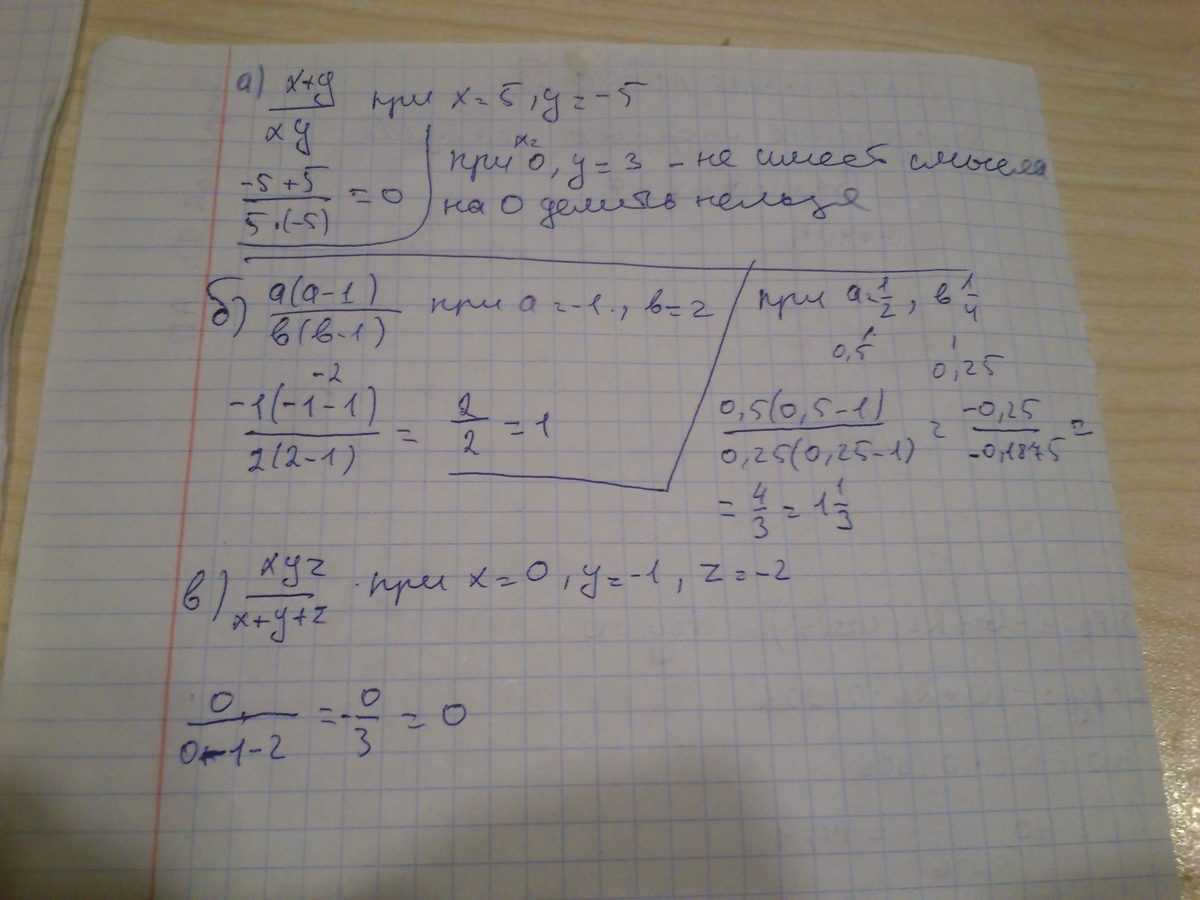 а) x+y/xy при x=5, y=-5
-5+5/5·(-5) = 0
при x=0, y=3 - не имеет смысла
на 0 делить нельзя
б) a(a-1)/в(в-1) при a=-1, в=2
-2
-1(-1-1)/2(2-1) = 2/2 = 1
при a=1/2, в 1/4
0,5 0,25
0,5(0,5-1)/0,25(0,25-1) = -0,25/-0,1875 =
= 4/3 = 1 1/3
в) xyz/x+y+z при x=0, y=-1, z=-2
0/0-1-2 = -0/3 = 0